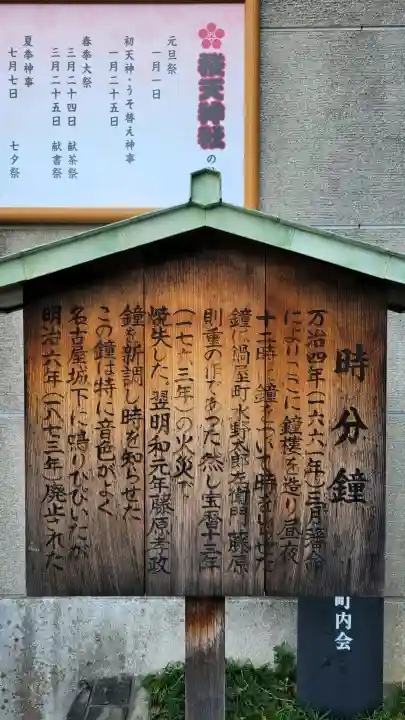 桜天神社の
元旦祭
一月一日
初天神・うそ替え神事
一月二十五日
春季大祭
三月二十四日 献茶祭
三月二十五日 献書祭
夏季神事
七月七日 七夕祭
時分鐘
万治四年(一六六一年)三月藩命
によりここに鐘樓を造り昼夜
十二時に鐘をついて時を知らせた
鐘は鍋屋町水野太郎左衛門藤原
則重の作であった然し宝暦十三年
(一七六三年)の火災で
焼失した。翌明和元年藤原孝政
鐘を新調し時を知らせた
この鐘は特に音色がよく
名古屋城下に鳴りひびいたが
明治六年(一八七三年)廃止された
町内会